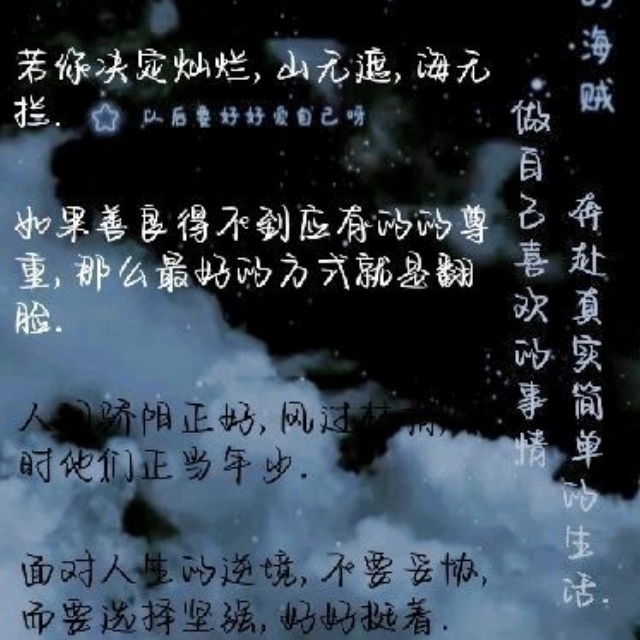 若你决定灿烂,山无遮,海无
拦.
以后要好好爱自己呀
如果善良得不到应有的的尊
重,那么最好的方式就是翻
脸.
人间骄阳正好,风过林梢,
时他们正当年少.
面对人生的逆境,不要妥协,
而要选择坚强,好好挺着.
海贼
做自己喜欢的事情
奔赴真实简单的生活.